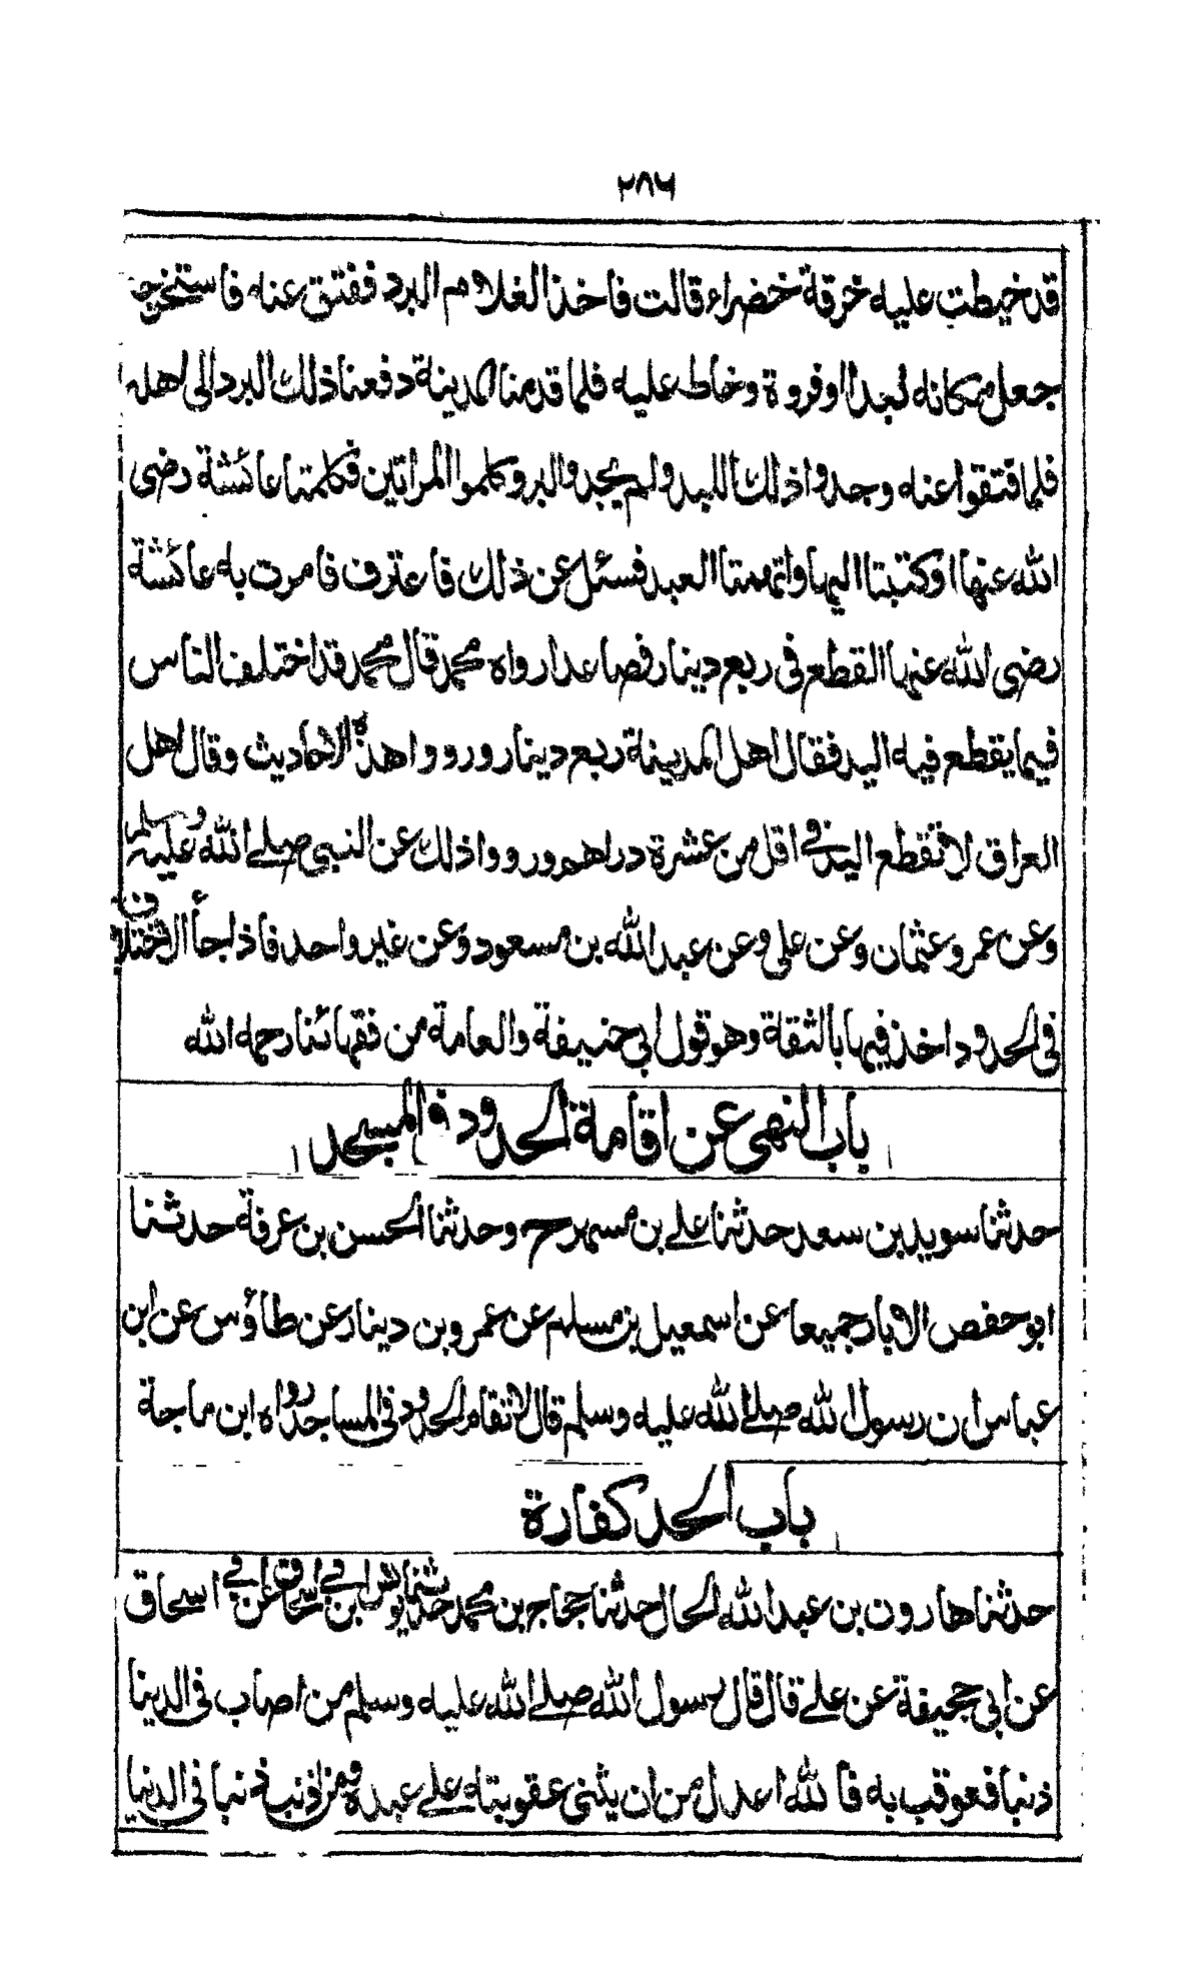 ٢٨٦
قد خيطت عليه خرقة خضراء قالت فاخذ الغلام البرد ففتق عنه فاستخرجه
جعل مكانه لبدا او فروة وخاط عليه فلما قدمنا المدينة دفعنا ذلك البرد الى اهله
فلما فتقوا عنه وجدوا ذلك اللبد ولم يجدوا البرو كلموا المراتين فكلمتا عائشة رضى
الله عنها او كتبتا اليها واتهمتا العبد فسئل عن ذلك فاعترف فامرت به عائشة
رضى الله عنها القطع فى ربع دينار فصاعدا رواه محمد قال محمد قد اختلف الناس
فيما يقطع فيه اليد فقال اهل المدينة ربع دينار ورووا هذه الاحاديث وقال اهل
العراق لا تقطع اليد فى اقل من عشرة دراهم ورووا ذلك عن النبى صلے الله عليه وسلم
وعن عمر وعثمان وعن على وعن عبد الله بن مسعود وعن غير واحد فاذا جأ الاختلاف
فى الحدود اخذ فيها بالثقة وهو قول ابى حنيفة والعامة من فقهائنا رحمه الله
باب النهى عن اقامة الحدود فى المسجد
حدثنا سويد بن سعد حدثنا علے بن مسهر ح وحدثنا الحسن بن عرفة حدثنا
ابو حفص الابار جميعا عن اسمعيل بن مسلم عن عمرو بن دينار عن طاؤس عن ابن
عباس ان رسول الله صلے الله عليه وسلم قال لا تقام الحدود فى المساجد رواه ابن ماجة
باب الحد كفارة
حدثنا هارون بن عبد الله الحال حدثنا حجاج بن محمد حدثنا يونس بن ابے اسحاق عن ابے اسحاق
عن ابى جحيفة عن علے قال قال رسول الله صلے الله عليه وسلم من اصاب فى الدينا
ذنبا فعوقب به فا لله اعدل من ان يثنى عقوبته علے عبده ومن اذنب ذنبا فى الدنيا